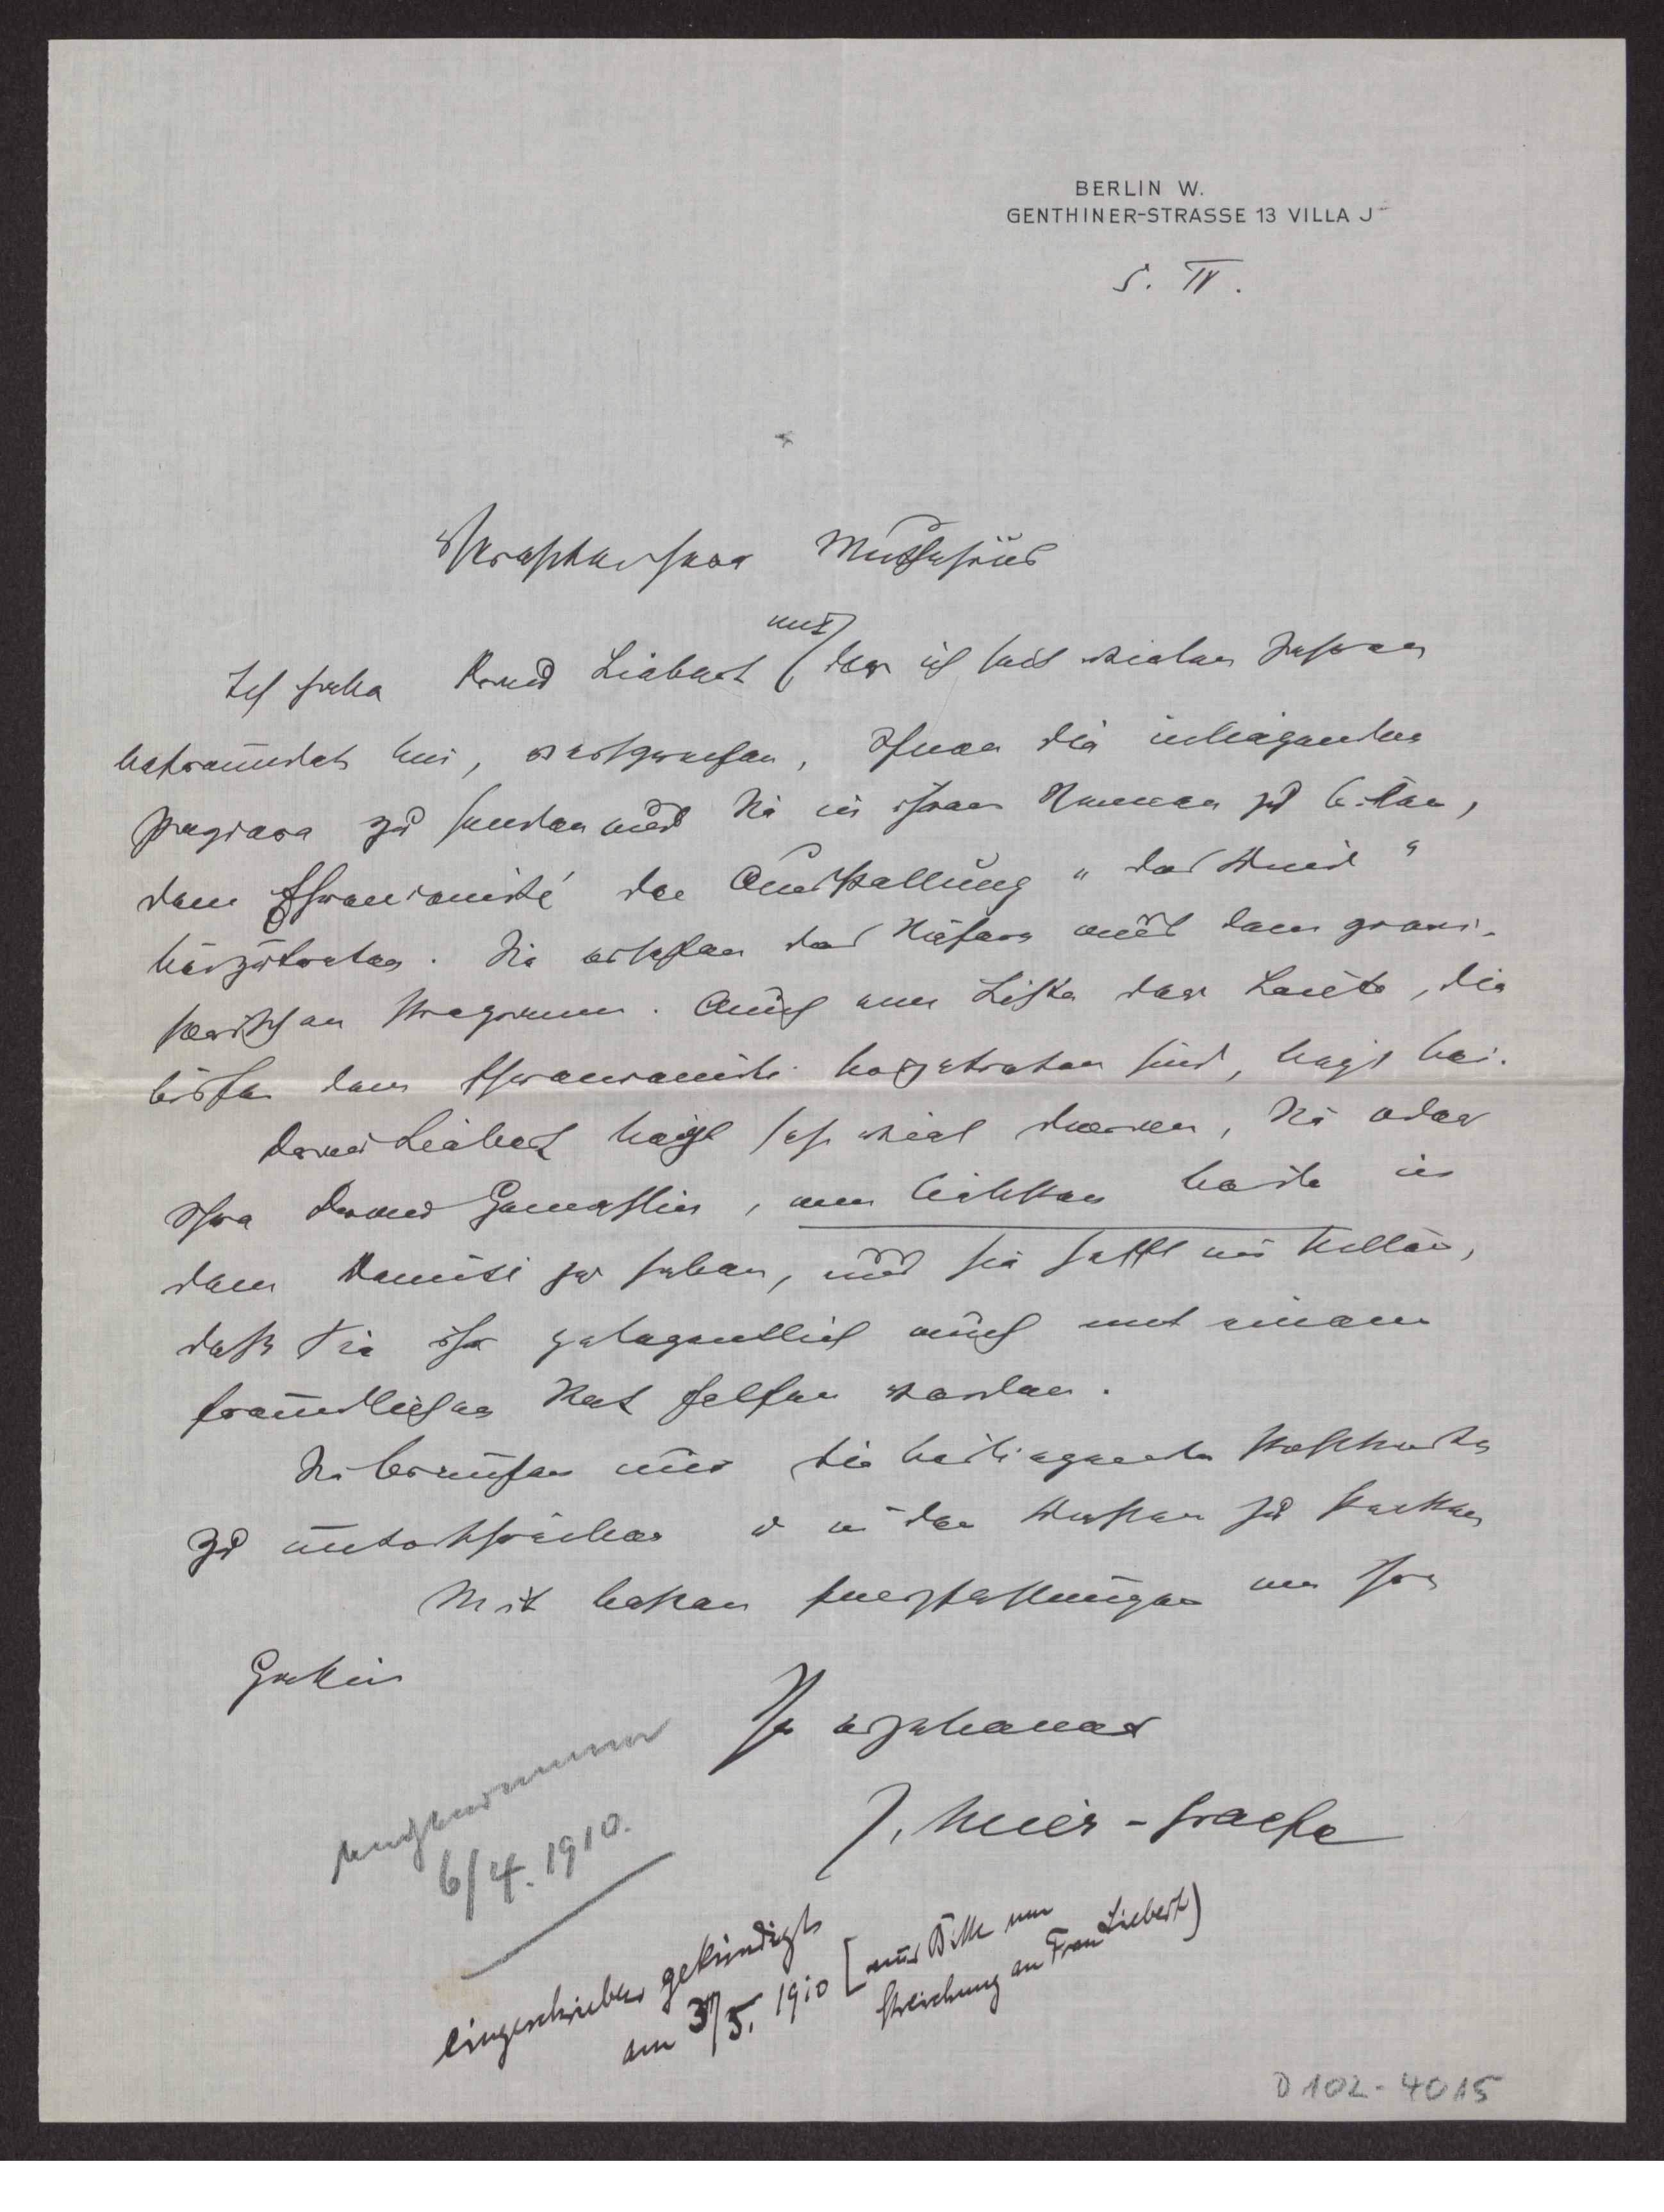 BERLIN W.
GENTHINER-STRASSE 13 VILLA J
5. IV.
Muthesius
mit
Ich habe Frau Liebert, der ich seit vielen Jahren
befreundet bin, versprochen, Ihnen die inliegenden
Papiere zu senden und Sie in ihrem Namen zu bitten,
dem Ehrencomité der Ausstellung "das Kind"
beizutreten. Sie ersehen das Nähere aus dem provi-
sorischen Programm. Auch eine Liste der Leute, die
bisher dem Ehrencomité beigetreten sind, liegt bei.
Frau Liebert liegt sehr viel daran, Sie oder
Ihre Frau Gemahlin, am liebsten beide in
dem Comité zu haben, und sie hofft im Stillen,
daß Sie ihr gelegentlich auch mit einem
freundlichen Rat helfen werden.
Sie brauchen nur die beiliegende Postkarte
zu unterschreiben u in den Kasten zu stecken
Mit besten Empfehlungen an Ihre
Gattin
Ihr ergebener
J. Meier-Graefe
angenommen
6/4. 1910.
eingeschrieben gekündigt
am 31/5. 1910 [mit Bitte um
Streichung an Frau Liebert)
D 102-4015